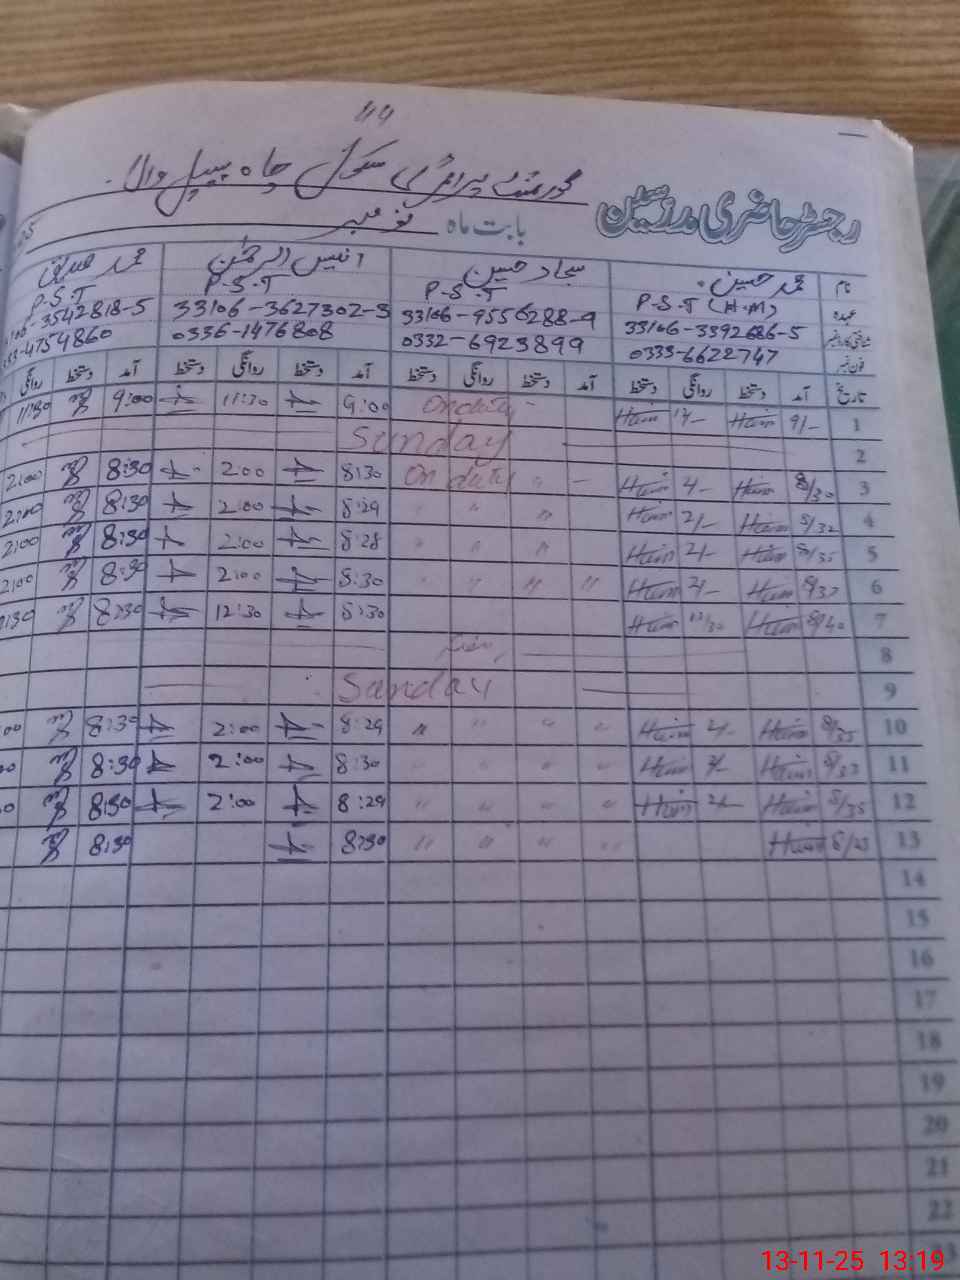 44
گورنمنٹ پرائمری سکول چاہ پیپل والا
رجسٹر حاضری مدرسین بابت ماہ نومبر
نام محمد حسین سجاد حسین انیس الرحمٰن محمد صدیق
عہدہ P.S.T (H.M) P.S.T P.S.T P.S.T
33106-3392686-5 33106-9556288-9 33106-3627302-3 3542818-5
فون نمبر 0333-6622747 0332-6923899 0336-1476808 4754860
تاریخ آمد دستخط روانگی دستخط آمد دستخط روانگی دستخط آمد دستخط روانگی دستخط آمد دستخط روانگی
1 9/- On duty 9:00 11:30 9:00 11:30
2 Sunday
3 8/30 2/- On duty " 8:30 2:00 8:30 2:00
4 8/32 2/- " " 8:29 2:00 8:30 2:00
5 8/35 2/- " " 8:28 2:00 8:30 2:00
6 8/37 2/- " " " 8:30 2:00 8:30 2:00
7 8/40 12/30 8:30 12:30 8:30
8
9 Sunday
10 8/35 2/- " " " " 8:29 2:00 8:30
11 2/- " " " 8:30 2:00 8:30
12 8/35 2/- " " " " 8:29 2:00 8:30
13 8/25 " " " " 8:30 8:30
14
15
16
17
18
19
20
21
22
23
13-11-25 13:19